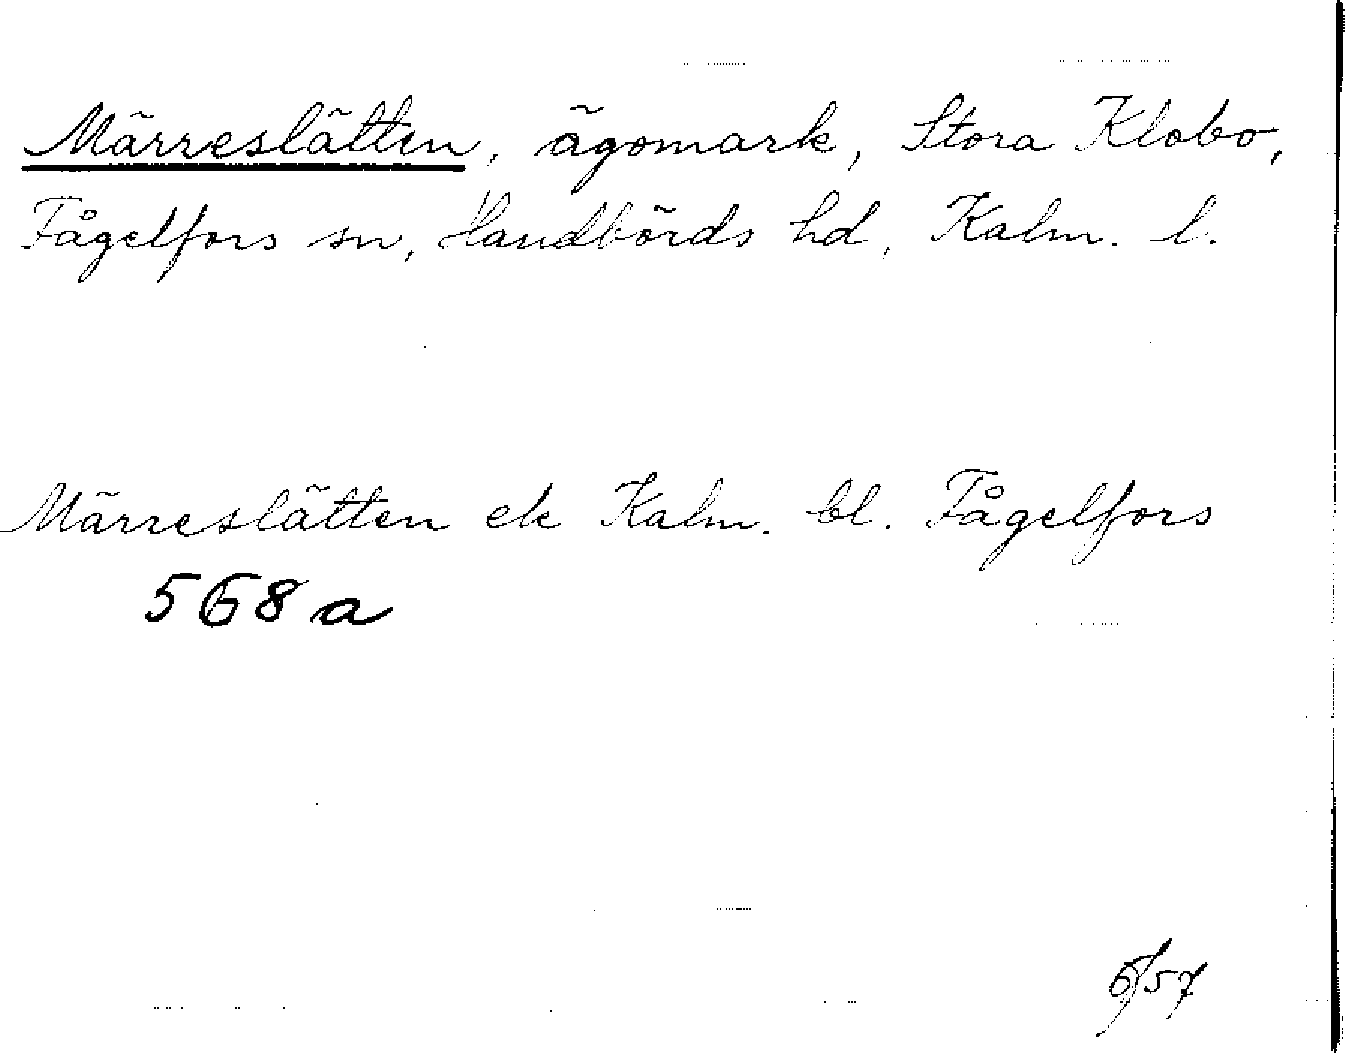 Märreslätten, ägomark, Stora Klobo,
Fågelfors sn, Handbörds hd, Kalm. l.
Märreslätten ek Kalm. bl. Fågelfors
568 a
6/57